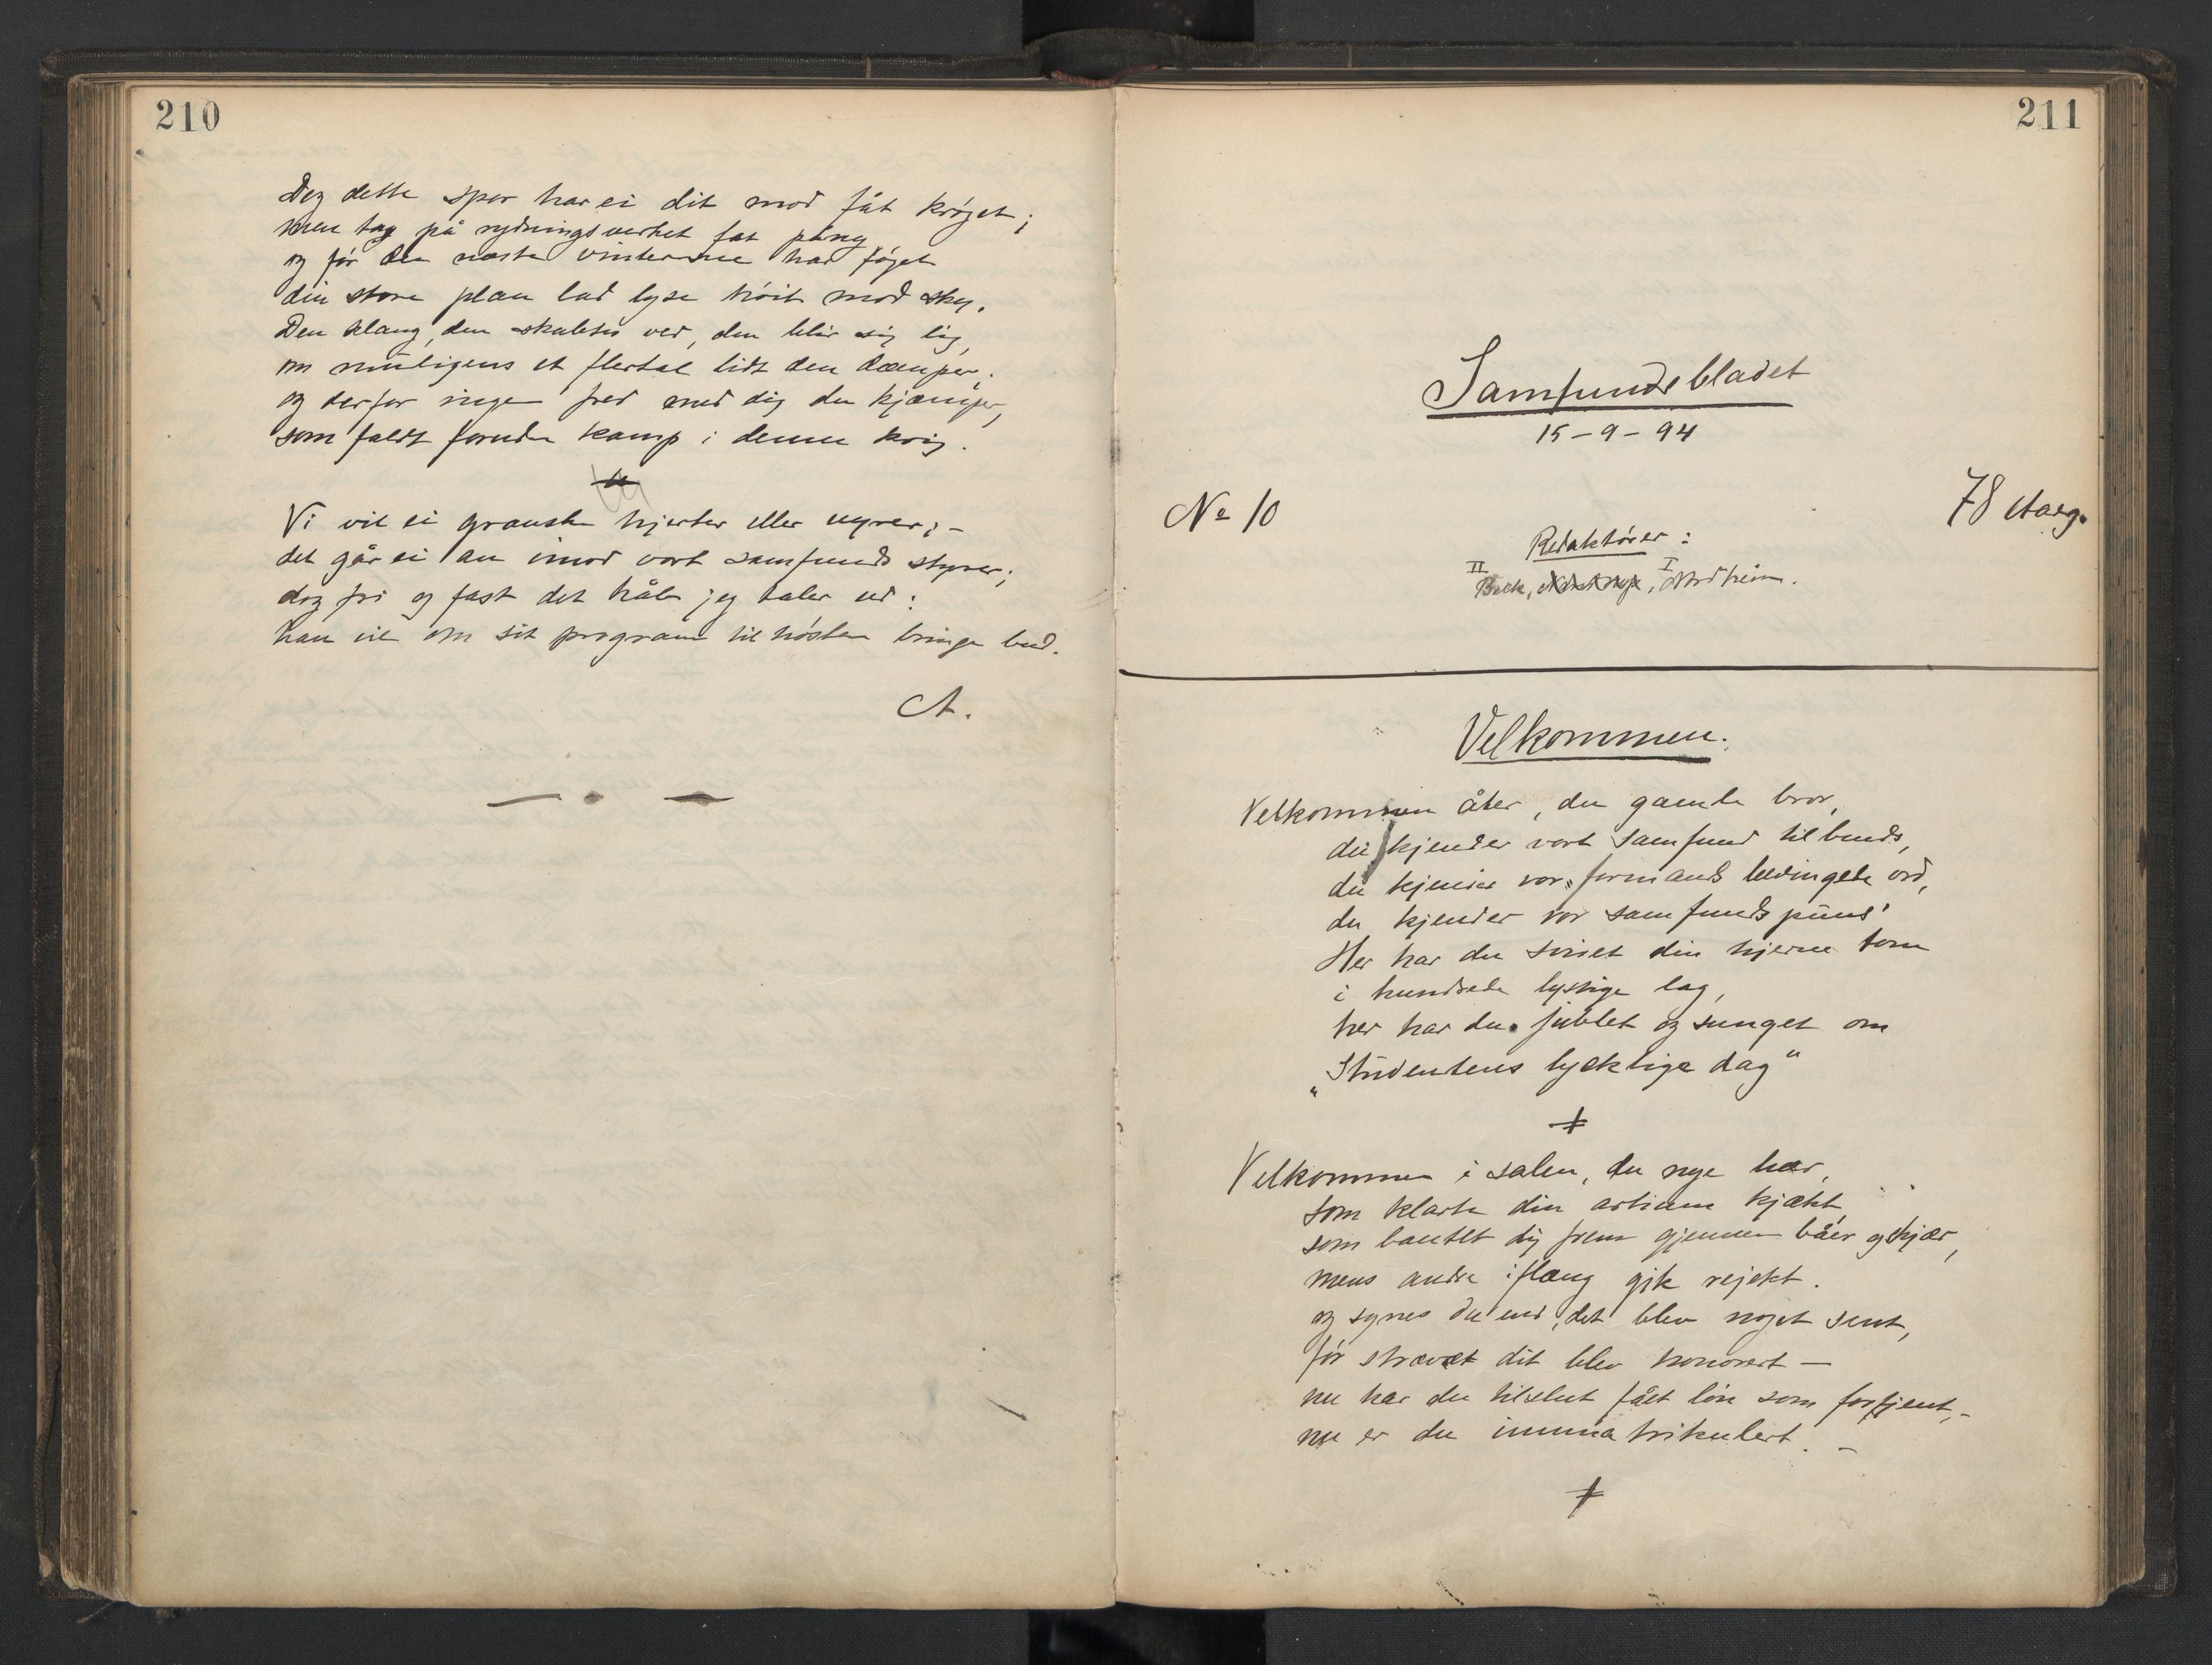 210
Dog dette spor har ei dit mod fåt krøget;
men tag på rydningsverket fat påny
og før den næste vinter sne har føget
din store plan lad lyse høit mod sky.
Den klang, den skabtes ved, den blir sig lig,
om muligens et flertal lidt den dæmper;
og derfor ingen fred med dig du kjæmper,
som faldt foruden kamp i denne krig.
Vi vil ei granske hjerter eller nyrer; –
det går ei an imod vort samfunds styrer;
dog fri og fast det håb jeg taler ud:
han vil om sit program til høsten bringe bud.
A.
211
Samfundsbladet
15-9-94
No 10
78 Aarg.
Redaktører:
II I
Beck, Nordheim.
Velkommen.
Velkommen åter, du gamle bror,
du kjender vort samfund tilbunds,
du kjender vor formands bevingede ord,
du kjender vor samfunds puns!
Her har du sviret din hjerne tom
i hundrede lystige lag,
her har du jublet og sunget om
„Studentens lycklige dag"
Velkommen i salen, du nye hær,
som klarte din artium kjækt,
som bautet dig frem gjennem båer og skjær,
mens andre iflæng gik rejekt.
og synes du end, det blev noget sent,
før strævet dit blev honorert —
nu har du tilslut fået løn som fortjent, –
nu er du immatrikulert. –